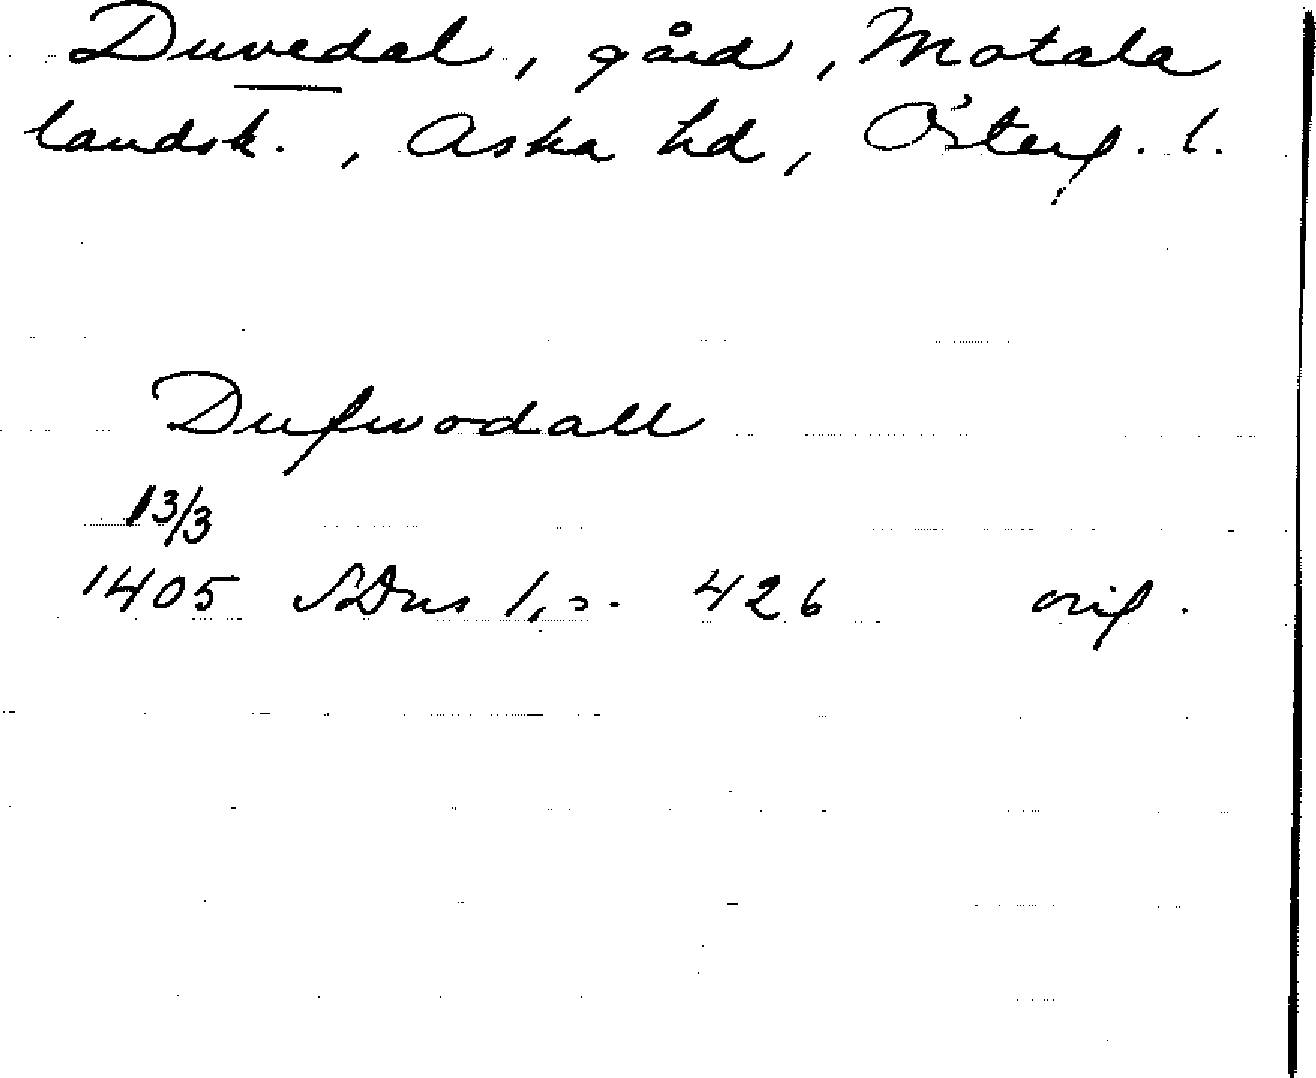 Duvedal, gård, Motala
landsk., Aska hd, Österg. l.
Dufwodall
13/3
1405 SDns 1, s. 426 orig.